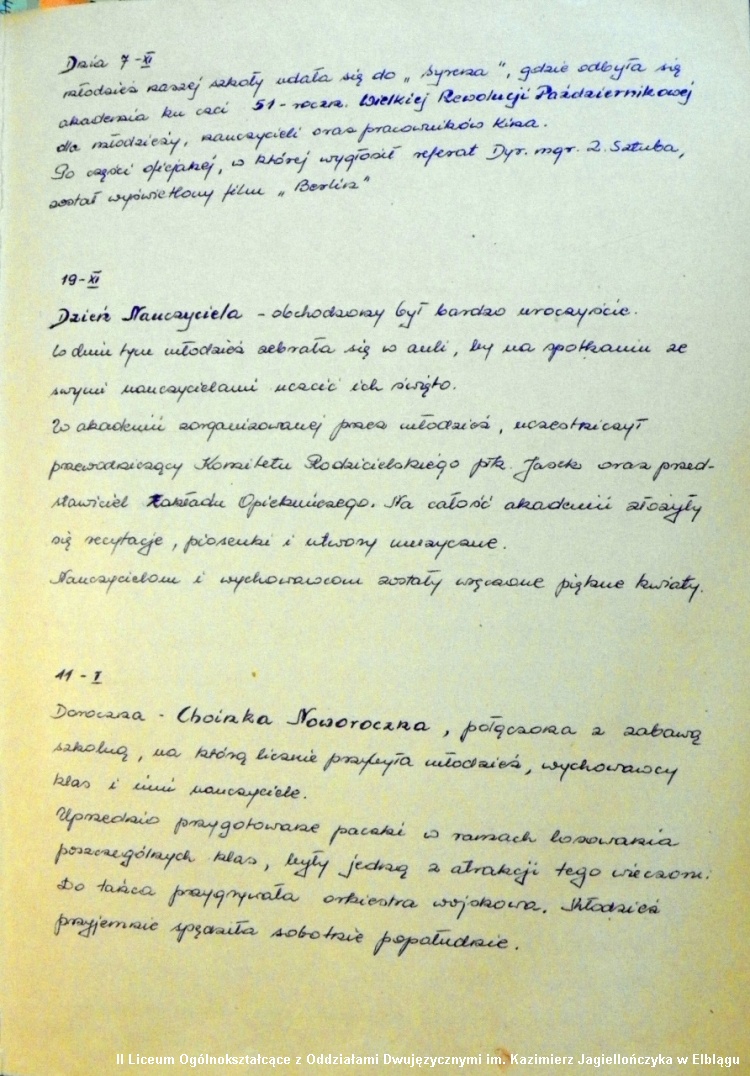 Dnia 7-XI
młodzież naszej szkoły udała się do „Syrena", gdzie odbyła się
akademia ku czci 51-roczn. Wielkiej Rewolucji Październikowej
dla młodzieży, nauczycieli oraz pracowników kina.
Po części oficjalnej, w której wygłosił referat Dyr. mgr. Z. Sztuba,
został wyświetlony film „Berlin"
19-XI
Dzień Nauczyciela - obchodzony był bardzo uroczyście.
W dniu tym młodzież zebrała się w auli, by na spotkaniu ze
swymi nauczycielami uczcić ich święto.
W akademii zorganizowanej przez młodzież, uczestniczył
przewodniczący Komitetu Rodzicielskiego płk. Jasek oraz przed-
stawiciel Zakładu Opiekuńczego. Na całość akademii złożyły
się recytacje, piosenki i utwory muzyczne.
Nauczycielom i wychowawcom zostały wręczone piękne kwiaty.
11-I
Doroczna - Choinka Noworoczna, połączona z zabawą
szkolną, na którą licznie przybyła młodzież, wychowawcy
klas i inni nauczyciele.
Uprzednio przygotowane paczki w ramach losowania
poszczególnych klas, były jedną z atrakcji tego wieczoru.
Do tańca przygrywała orkiestra wojskowa. Młodzież
przyjemnie spędziła sobotnie popołudnie.
II Liceum Ogólnokształcące z Oddziałami Dwujęzycznymi im. Kazimierz Jagiellończyka w Elblągu